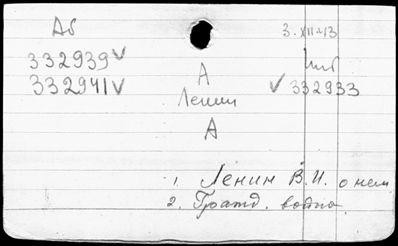 Аб
3. XII-13
332939 V
332941 V
А
Ленин
V 332933
А
1. Ленин В.И. о нем
2. Гражд. война